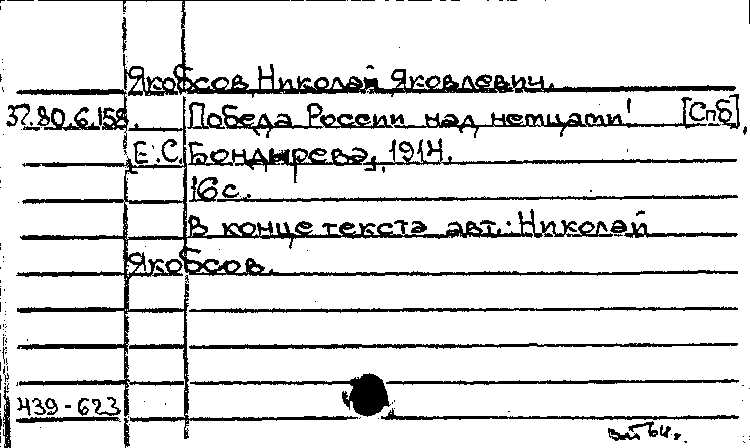 Якобсов Николай Яковлевич.
37.80.6.158. Победа России над немцами! [Спб],
[Е.С. Бондырева], 1914.
16 с.
В конце текста авт.: Николай
Якобсов.
439-623